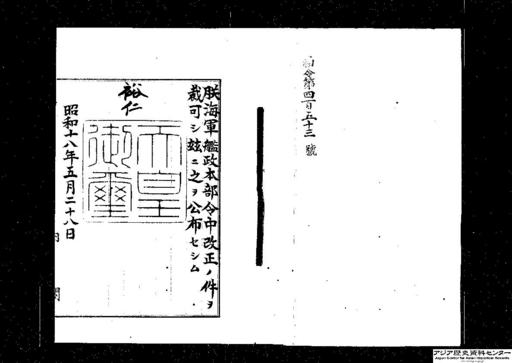 勅令第四百五十三號
朕海軍艦政本部令中改正ノ件ヲ
裁可シ茲ニ之ヲ公布セシム
裕仁
天皇
御璽
昭和十八年五月二十八日
アジア歴史資料センター
Japan Center for Asian Historical Records